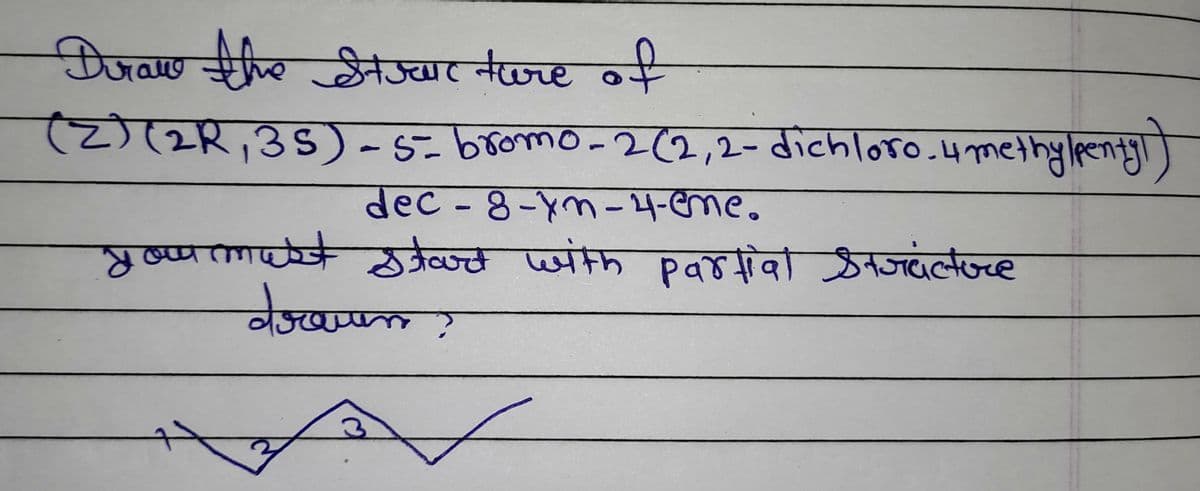 Draw the Structure of
(Z)(2R,3S)-5-bromo-2(2,2-dichloro.4methylpentyl)
dec-8-yn-4-ene.
you must start with partial Structure
drawn ?
1 2 3